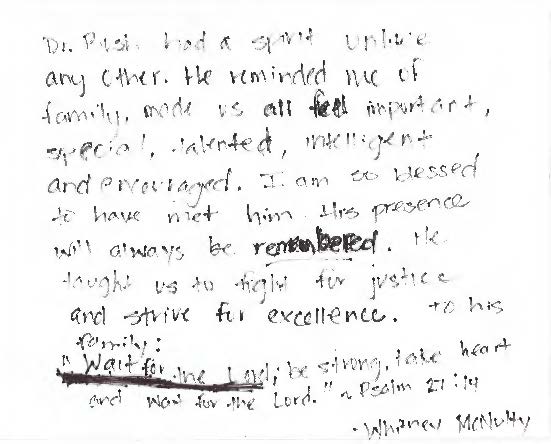 Dr. Rush had a spirit unlike
any other. He reminded me of
family, made us all feel important,
special, talented, intelligent
and encouraged. I am so blessed
to have met him. His presence
will always be remembered. He
taught us to fight for justice
and strive for excellence. To his
family:
"Wait for the Lord; be strong, take heart
and wait for the Lord." ~ Psalm 27:14
- Whitney McNulty